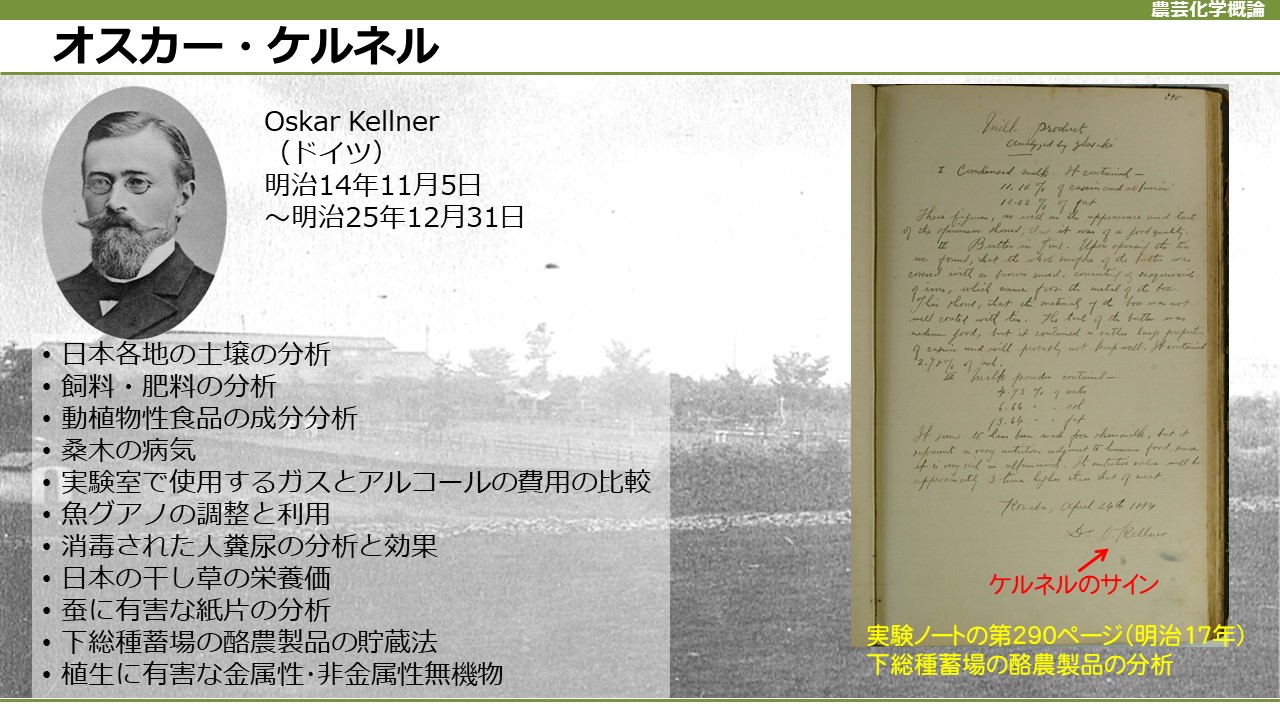 農芸化学概論
オスカー・ケルネル
Oskar Kellner
（ドイツ）
明治14年11月5日
～明治25年12月31日
• 日本各地の土壌の分析
• 飼料・肥料の分析
• 動植物性食品の成分分析
• 桑木の病気
• 実験室で使用するガスとアルコールの費用の比較
• 魚グアノの調整と利用
• 消毒された人糞尿の分析と効果
• 日本の干し草の栄養価
• 蚕に有害な紙片の分析
• 下総種蓄場の酪農製品の貯蔵法
• 植生に有害な金属性･非金属性無機物
290
Milk product
analysed by
I Condensed milk. It contained —
11.10 % of casein and albumin
10.02 % of fat
These figures, as well as the appearance and taste
of the specimen showed, that it was of a good quality.
II Butter in tins. Upon opening the tin
we found, that the whole surface of the butter was
covered with a brown mud, consisting of sesquioxide
of iron, which came from the metal of the box.
This showed, that the material of the box was not
well coated with tin. The taste of the butter was
medium good, but it contained a rather large proportion
of casein and will probably not keep well. It contained
2.78% of ash.
III Milk powder contained —
4.73 % of water
6.66 " " ash
13.64 " " fat
It seems to have been made from skim milk, but it
represents a very nutritious adjunct to human food, since
it is very rich in albuminoids. Its nutritive value will be
approximately 3 times higher than that of meat.
Komaba, April 24th 1884
Dr O. Kellner
ケルネルのサイン
実験ノートの第290ページ（明治17年）
下総種蓄場の酪農製品の分析